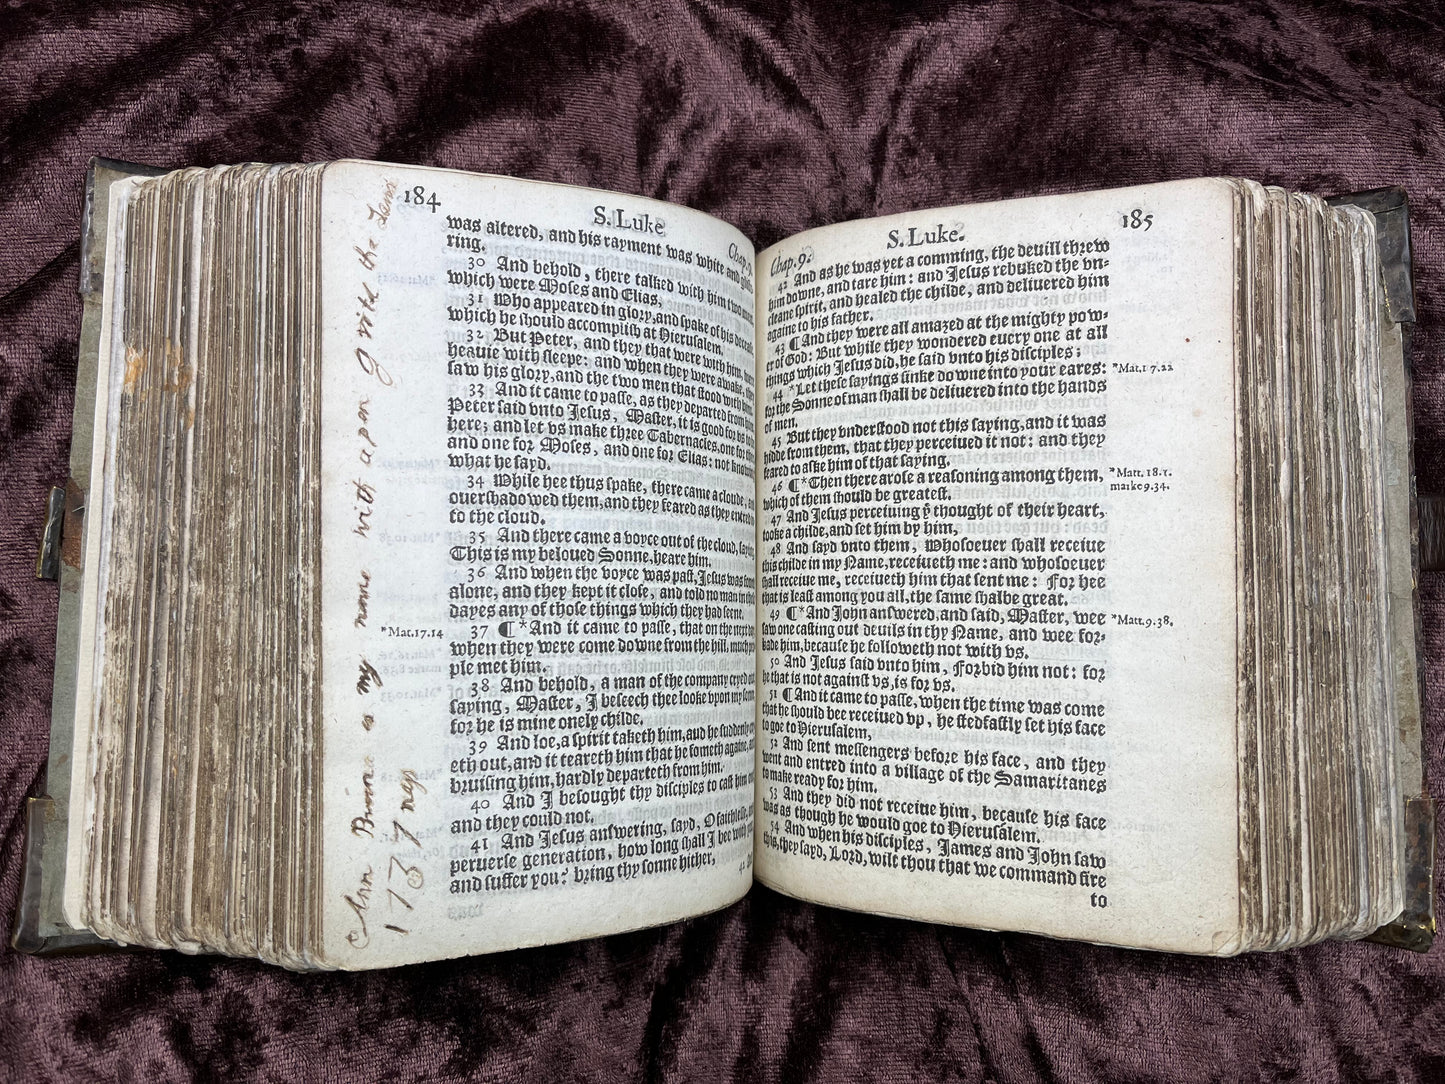 184
S. Luke
Chap. 9.
was altered, and his rayment was white and gliste-
ring.
30 And behold, there talked with him two men
which were Moses and Elias,
31 Who appeared in glory, and spake of his decease
which he should accomplish at Hierusalem.
32 But Peter, and they that were with him, were
heauie with sleepe: and when they were awake, they
saw his glory, and the two men that stood with him.
33 And it came to passe, as they departed from him
Peter said vnto Jesus, Master, it is good for vs to be
here; and let vs make three Tabernacles, one for thee
and one for Moses, and one for Elias: not knowing
what he sayd.
34 While hee thus spake, there came a cloude, and
ouershadowed them, and they feared as they entred in
to the cloud.
35 And there came a voyce out of the cloud, saying
This is my beloued Sonne, heare him.
36 And when the voyce was past, Jesus was found
alone, and they kept it close, and told no man in those
dayes any of those things which they had seene.
*Mat.17.14
37 ¶ *And it came to passe, that on the next day
when they were come downe from the hill, much peo-
ple met him.
38 And behold, a man of the company cryed out
saying, Master, I beseech thee looke vpon my sonne
for he is mine onely childe.
39 And loe, a spirit taketh him, aud he suddenly cry-
eth out, and it teareth him that he fometh againe, and
bruising him, hardly departeth from him.
40 And I besought thy disciples to cast him out
and they could not.
41 And Jesus answering, sayd, O faithlesse, and
peruerse generation, how long shall I bee with you
and suffer you? bring thy sonne hither,
42 And
Ann my name with a pen I write the Same
1737
185
S. Luke.
Chap. 9.
42 And as he was yet a comming, the deuill threw
him downe, and tare him: and Jesus rebuked the vn-
cleane spirit, and healed the childe, and deliuered him
againe to his father.
43 ¶ And they were all amazed at the mighty pow-
er of God: But while they wondered euery one at all
things which Jesus did, he said vnto his disciples:
44 *Let these sayings sinke downe into your eares:
*Mat.17.22
for the Sonne of man shall be deliuered into the hands
of men.
45 But they vnderstood not this saying, and it was
hidde from them, that they perceiued it not: and they
feared to aske him of that saying.
46 ¶ *Then there arose a reasoning among them,
*Matt. 18.1.
marke 9.34.
which of them should be greatest.
47 And Jesus perceiuing yͤ thought of their heart,
tooke a childe, and set him by him,
48 And sayd vnto them, Whosoeuer shall receiue
this childe in my Name, receiueth me: and whosoeuer
shall receiue me, receiueth him that sent me: For hee
that is least among you all, the same shalbe great.
49 ¶ *And John answered, and said, Master, wee
*Matt.9.38.
saw one casting out deuils in thy Name, and wee for-
bade him, because he followeth not with vs.
50 And Jesus said vnto him, Forbid him not: for
he that is not against vs, is for vs.
51 ¶ And it came to passe, when the time was come
that he should bee receiued vp, he stedfastly set his face
to goe to Hierusalem,
52 And sent messengers before his face, and they
went and entred into a village of the Samaritanes
to make ready for him.
53 And they did not receiue him, because his face
was as though he would goe to Hierusalem.
54 And when his disciples, James and John saw
this, they sayd, Lord, wilt thou that we command fire
to